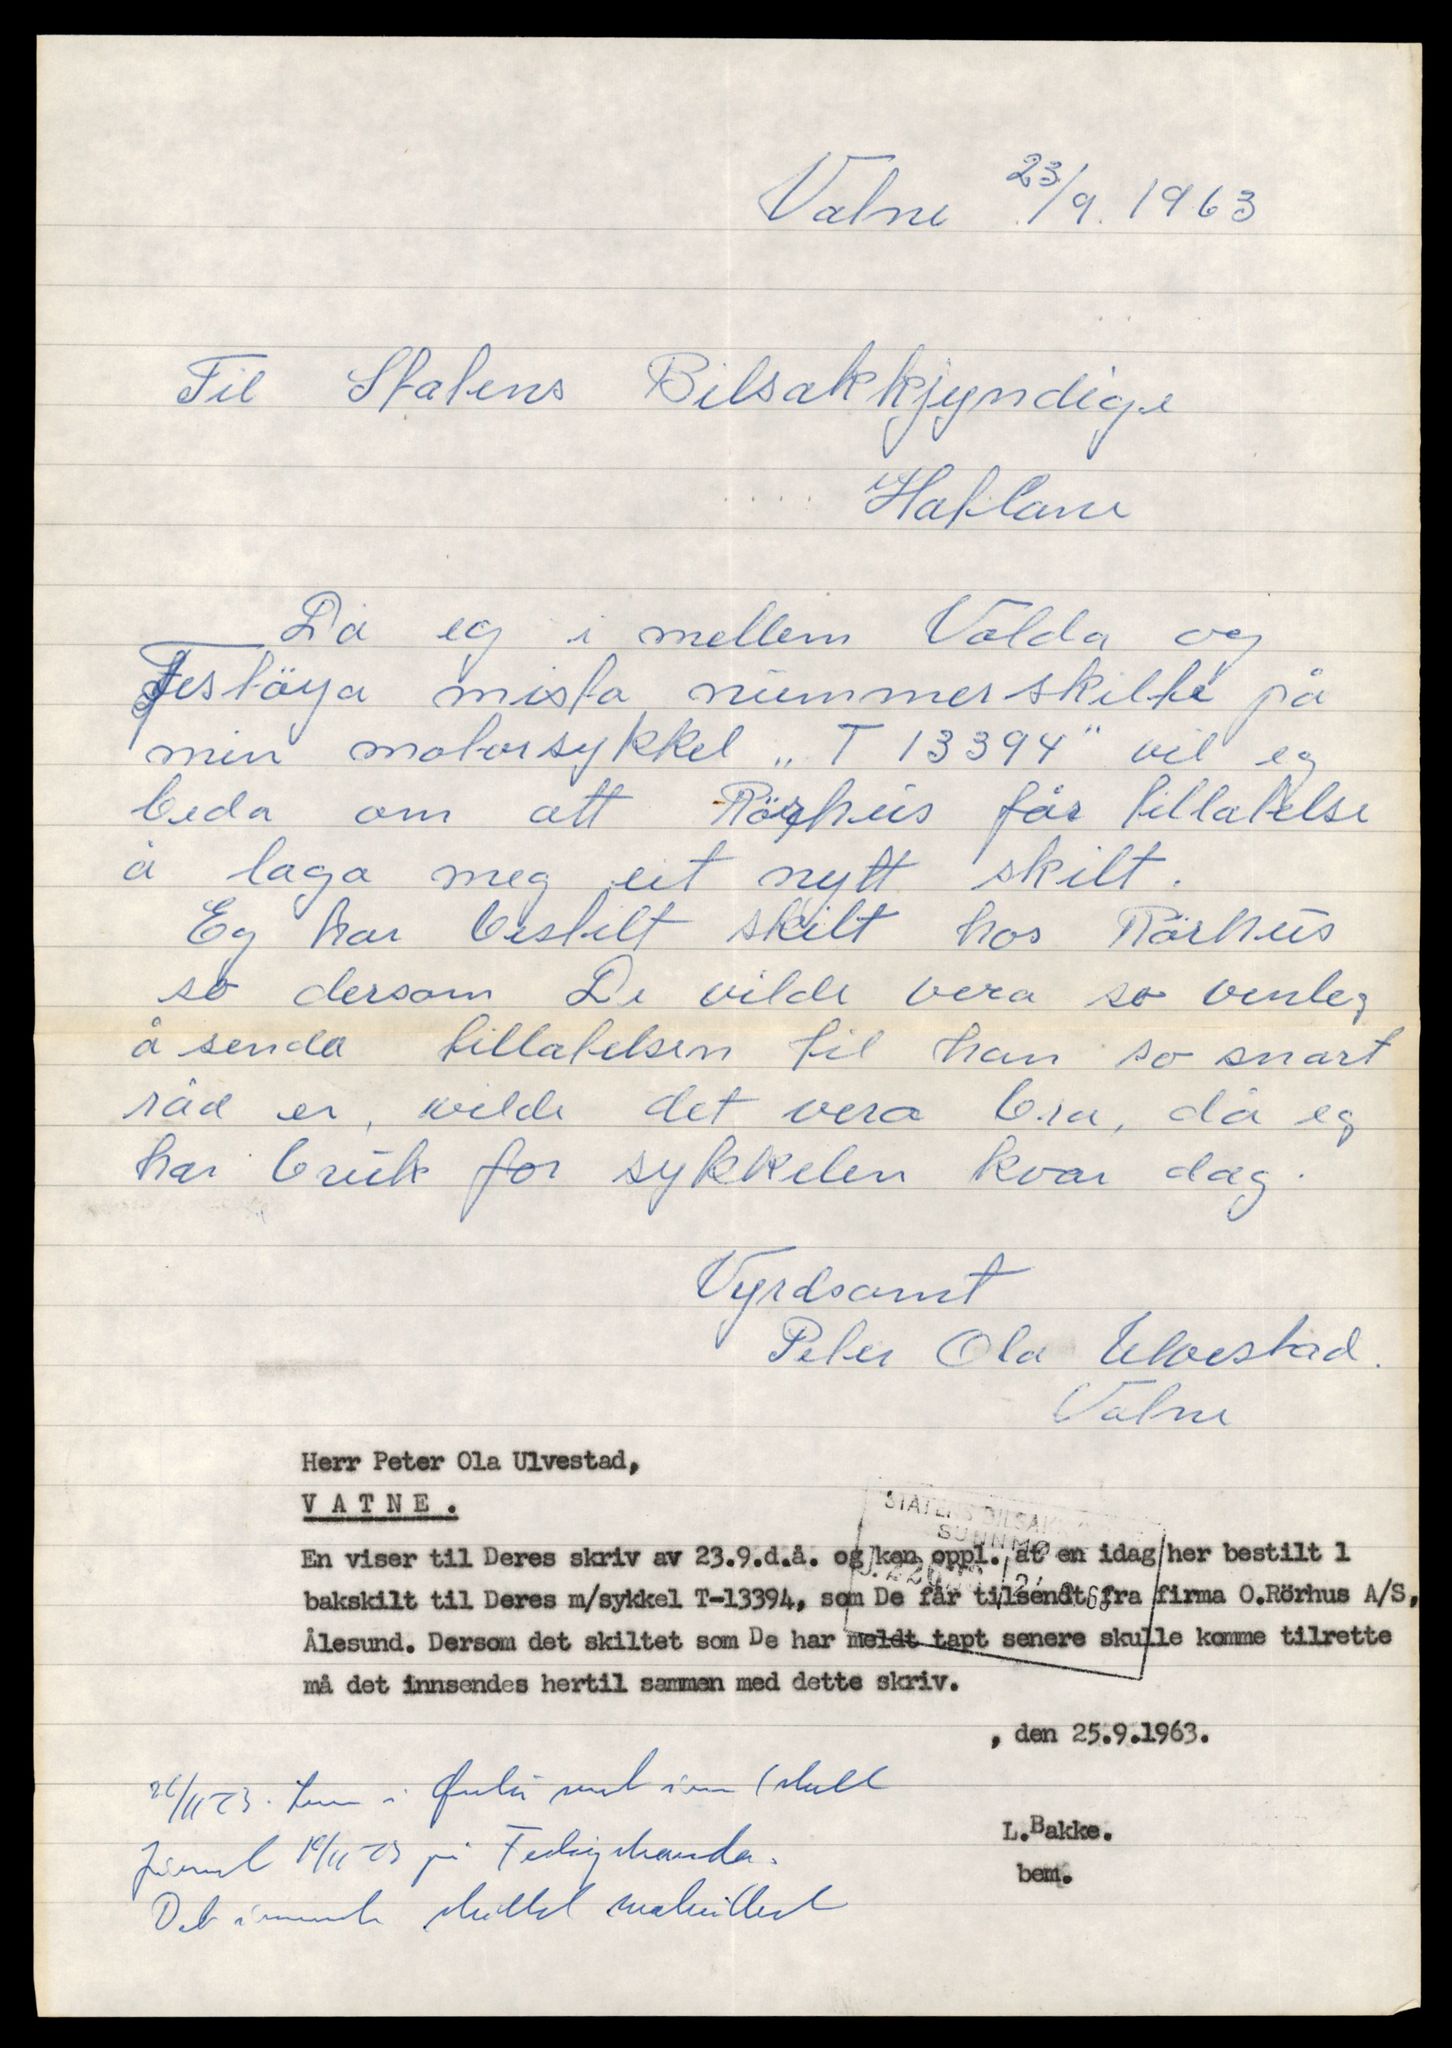 Vatne 23/9. 1963
Til Statens Bilsakkjyndige
Hatlane
Då eg i mellem Volda og
Festöya mista nummerskilte på
min motorsykkel „T 13394" vil eg
beda om att Rörhus får tillatelse
å laga meg eit nytt skilt.
Eg har bestilt skilt hos Rörhus
so dersom De vilde vera so venleg
å senda tillatelsen til han so snart
råd er, vilde det vera bra, då eg
har bruk for sykkelen kvar dag.
Vyrdsamt
Peter Ola Ulvestad.
Vatne
Herr Peter Ola Ulvestad,
VATNE.
STATENS BILSAK
SUNNMØ
En viser til Deres skriv av 23.9.d.å. og kan oppl. at en idag her bestilt 1
bakskilt til Deres m/sykkel T-13394, som De får tilsendt fra firma O.Rörhus A/S,
Ålesund. Dersom det skiltet som De har meldt tapt senere skulle komme tilrette
må det innsendes hertil sammen med dette skriv.
, den 25.9.1963.
L.Bakke.
bem.
skilt
19/11 73 på
Det skiltet